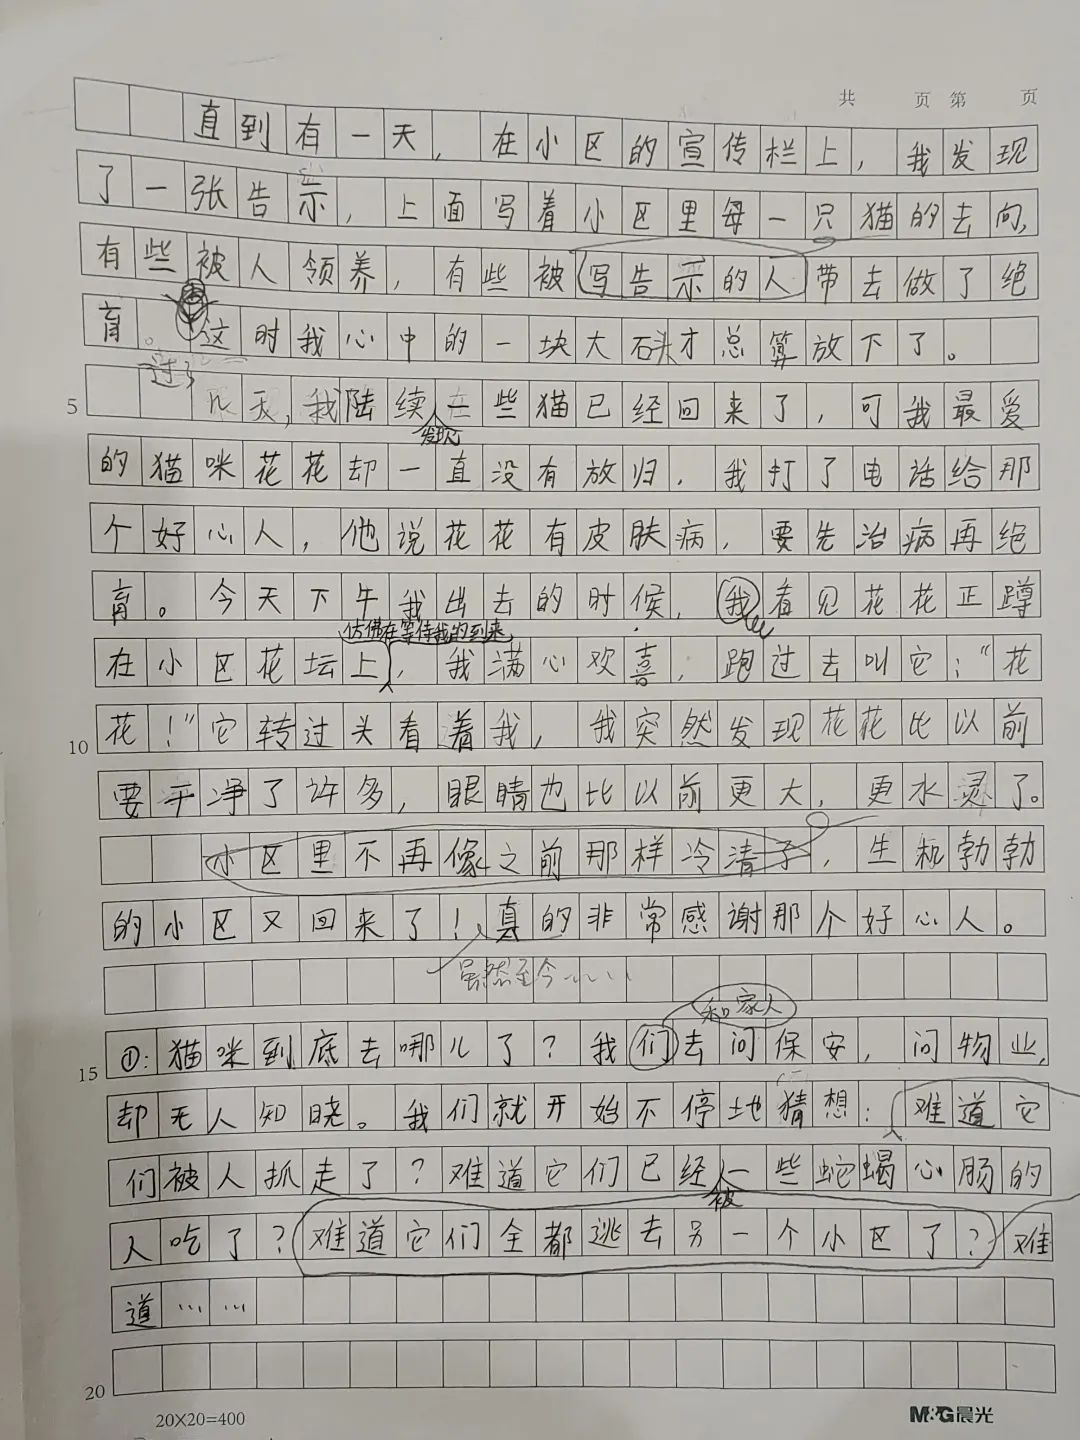 共 页 第 页
直到有一天，在小区的宣传栏上，我发现
了一张告示，上面写着小区里每一只猫的去向，
有些被人领养，有些被写告示的人带去做了绝
育。这时我心中的一块大石头才总算放下了。
过了
5 天，我陆续一些猫已经回来了，可我最爱
发现
的猫咪花花却一直没有放归，我打了电话给那
个好心人，他说花花有皮肤病，要先治病再绝
育。今天下午我出去的时候，我看见花花正蹲
仿佛在等待我的到来
在小区花坛上，我满心欢喜，跑过去叫它：“花
10 花！”它转过头看着我，我突然发现花花比以前
要干净了许多，眼睛也比以前更大，更水灵了。
小区里不再像之前那样冷清了，生机勃勃
的小区又回来了！真的非常感谢那个好心人。
虽然至今……
和家人
15 ①：猫咪到底去哪儿了？我们去问保安，问物业，
却无人知晓。我们就开始不停地猜想：难道它
们被人抓走了？难道它们已经一些蛇蝎心肠的
被
人吃了？难道它们全都逃去另一个小区了？难
道……
20
20×20=400
M&G晨光